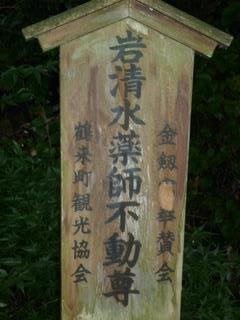 金劔一宇賛会
岩清水薬師不動尊
鶴来町観光協会